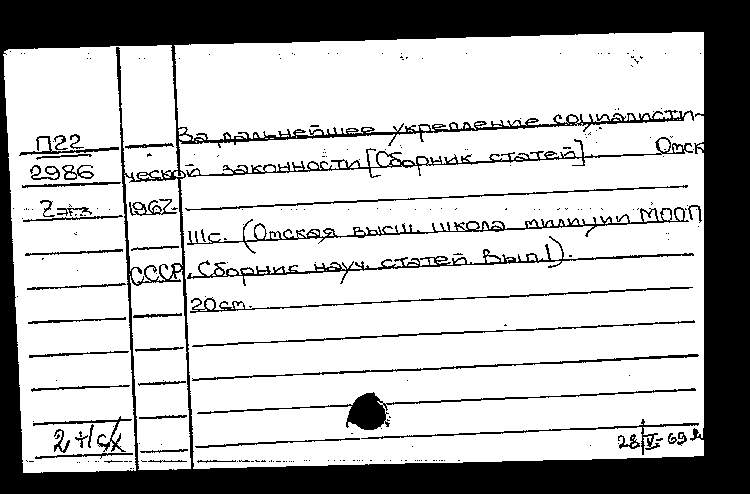 П22 За дальнейшее укрепление социалисти-
2986 ческой законности [Сборник статей]. Омск
1962
111с. (Омская высш. школа милиции МООП
СССР. Сборник науч. статей. Вып.1).
20см.
2+1
28/V-69